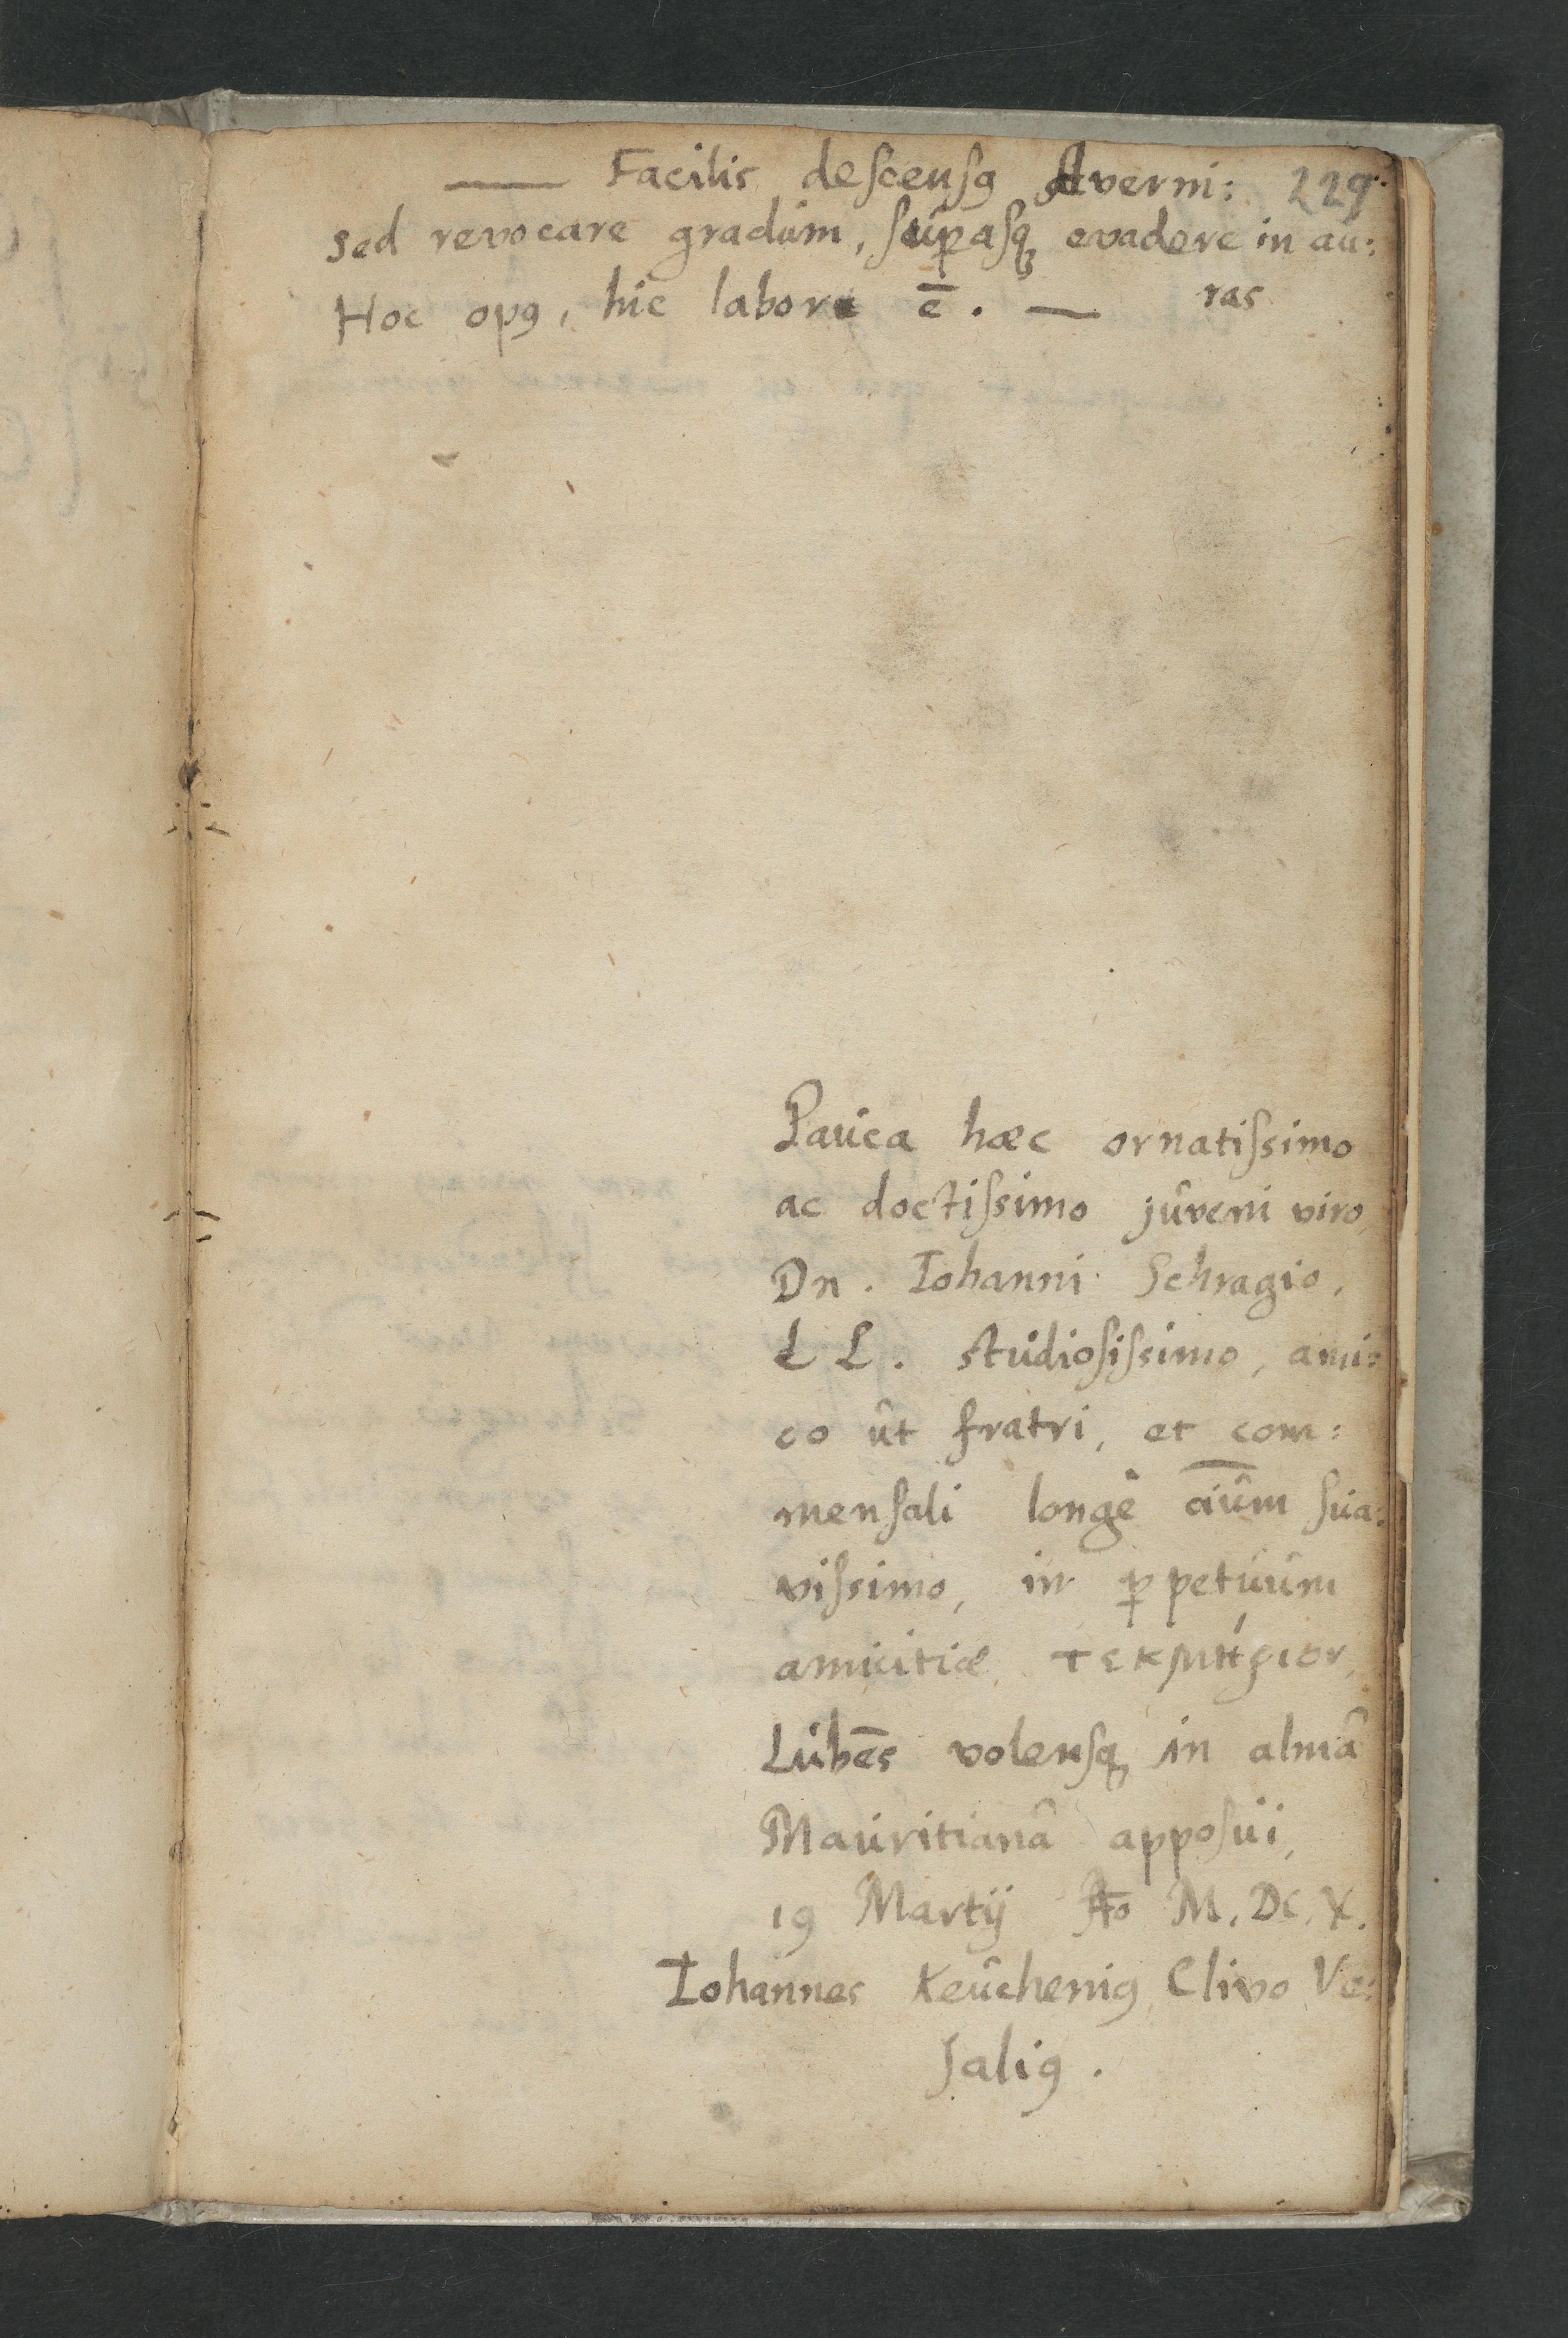 — Facilis descensꝰ Averni: 229
sed revocare gradům, sůꝑasqꝫ evadere in aů:
ras
Hoc opꝰ, hic labor ē. —
Paůca hæc ornatissimo
ac doctissimo jůveni viro,
Dn. Iohanni Schragio,
L L. stůdiosissimo, ami:
co ůt fratri, et com:
mensali longè oı̅ům sůa:
vissimo, in ꝑpetůům
amicitiæ τεκμήριον,
Lůbēs volensqꝫ in almâ
Maůritianâ apposůi,
19 Martij Ao M.DC.X.
Iohannes Keůcheniꝰ Clivo Ve:
saliꝰ.